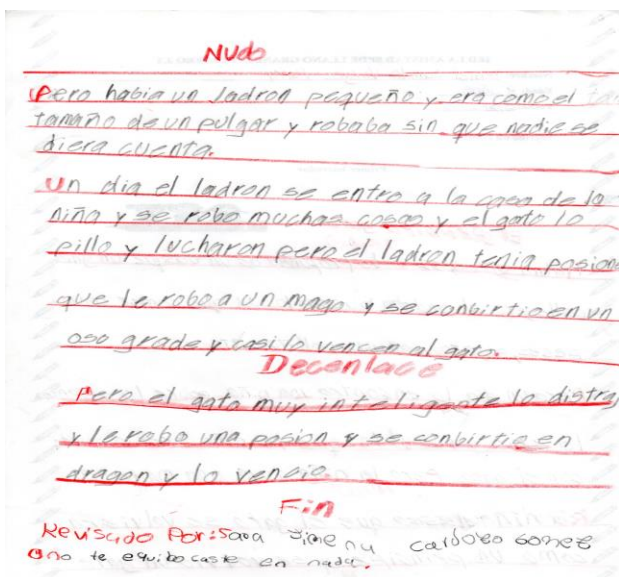 Nudo
Pero habia un ladron pequeño y era como el tam
tamaño de un pulgar y robaba sin que nadie se
diera cuenta.
un dia el ladron se entro a la casa de la
niña y se robo muchas cosas y el gato lo
pillo y lucharon pero el ladron tenia posion
que le robo a un mago y se conbirtio en un
oso grade y casi lo vencen al gato.
Decenlace
Pero el gato muy inteligente lo distraj
y le robo una posion y se conbirtio en
dragon y lo vencio.
Fin
Revisado Por: Sara Jimena Cardozo Gomez
no te equibocaste en nada.